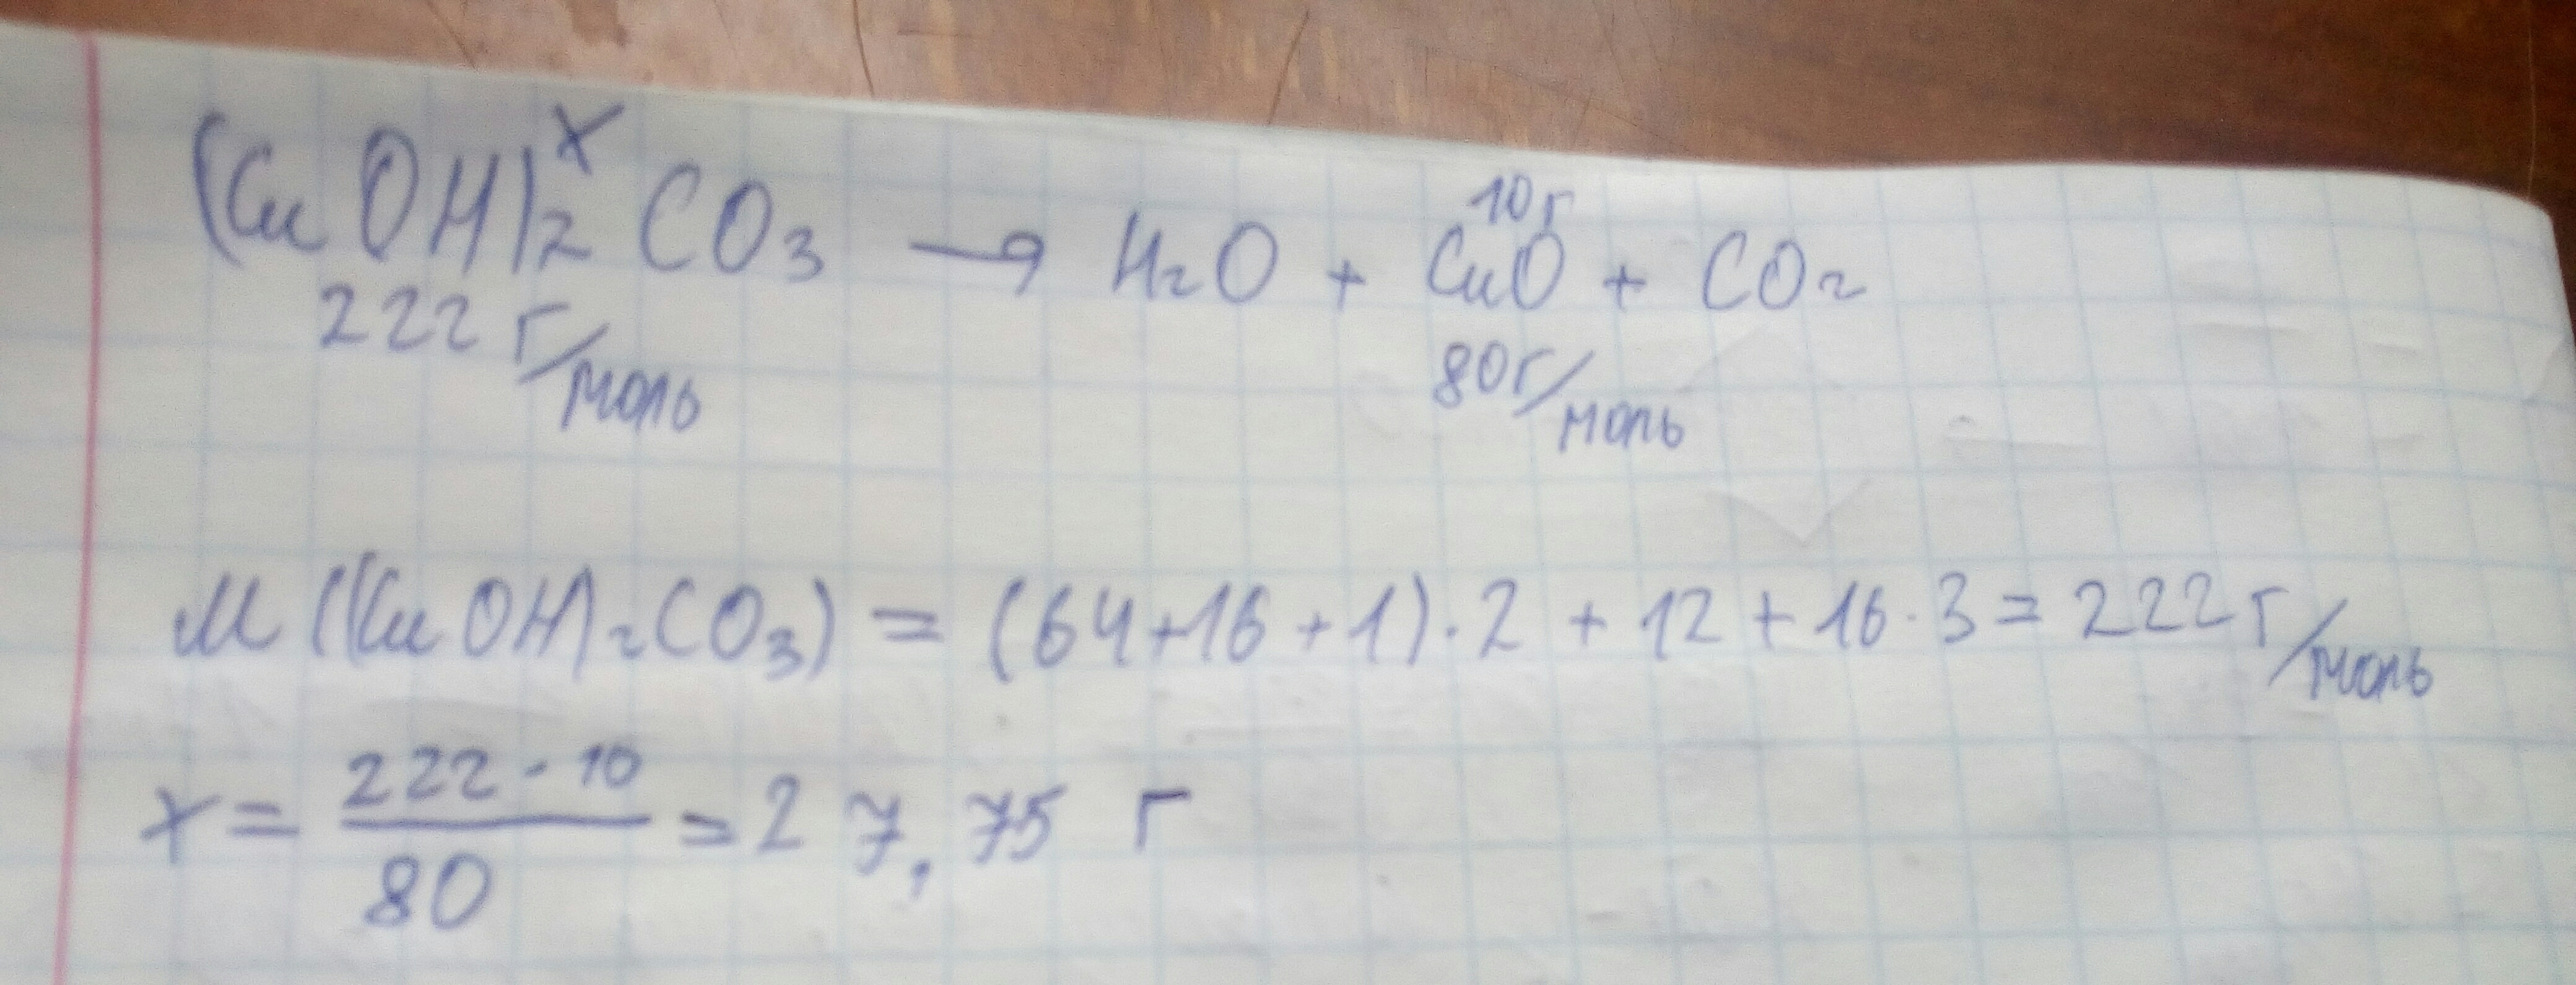 x 10г
(CuOH)₂CO₃ → H₂O + CuO + CO₂
222 г/моль 80г/моль
M ((CuOH)₂CO₃) = (64+16+1)·2 + 12 + 16·3 = 222 г/моль
x = 222·10/80 = 27,75 г